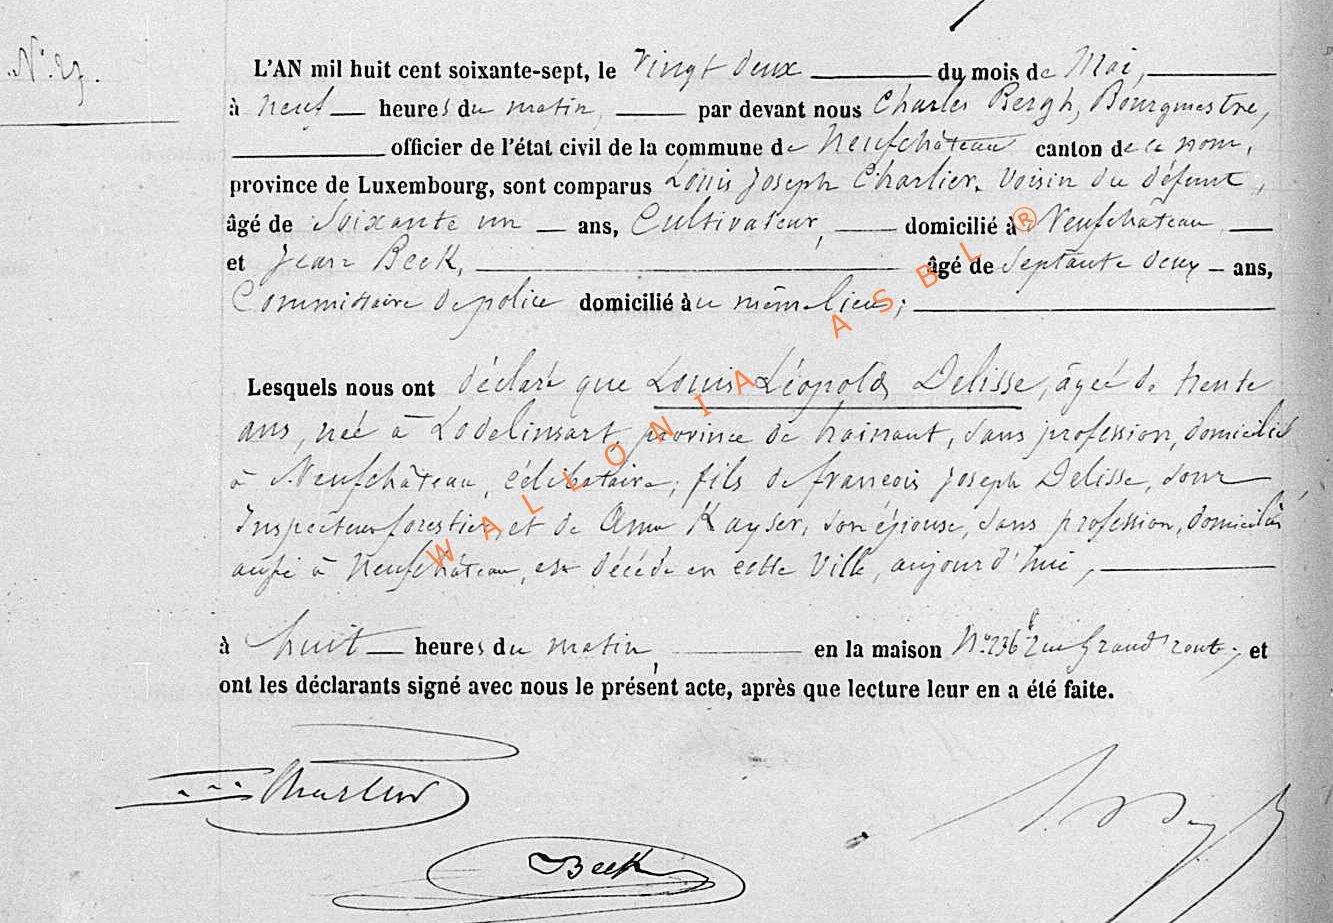 N° 27.
L'AN mil huit cent soixante-sept, le Vingt deux du mois de Mai,
à neuf heures du matin, par devant nous Charles Bergh, Bourgmestre,
officier de l'état civil de la commune de Neufchâteau canton de ce nom,
province de Luxembourg, sont comparus Louis Joseph Charlier, voisin du défunt,
âgé de Soixante un ans, Cultivateur, domicilié à Neufchâteau
et Jean Beck, âgé de Septante deux ans,
Commissaire de police domicilié au même lieu;
Lesquels nous ont déclaré que Louis Léopold Delisse, âgé de trente
ans, né à Lodelinsart, province de hainaut, sans profession, domicilié
à Neufchâteau, célibataire; fils de françois Joseph Delisse, sous
Inspecteur forestier, et de Kayser, son épouse, sans profession, domiciliés
aussi à Neufchâteau, est décédé en cette Ville, aujourd'hui,
à huit heures du matin, en la maison N° 236 rue Grand' route, et
ont les déclarants signé avec nous le présent acte, après que lecture leur en a été faite.
Charlier
Beck
WALLONIA ASBL ®